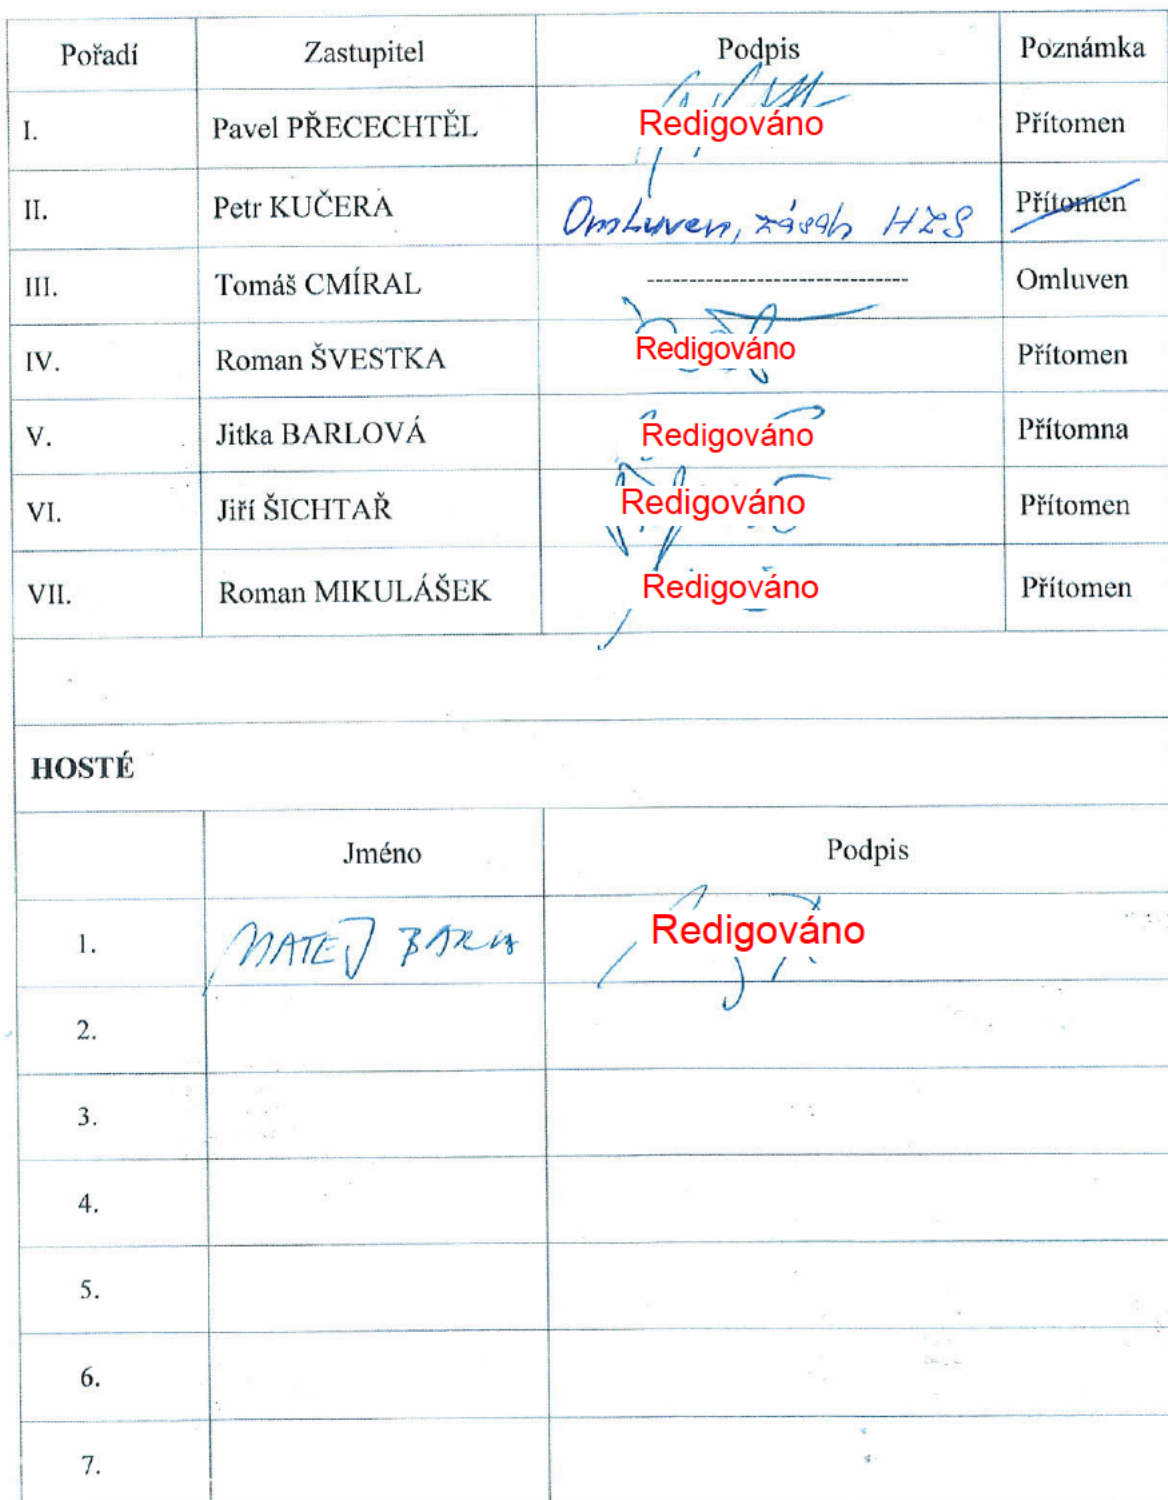 Pořadí Zastupitel Podpis Poznámka
I. Pavel PŘECECHTĚL Redigováno Přítomen
II. Petr KUČERA Omluven, zásah HZS Přítomen
III. Tomáš CMÍRAL ------------------------------- Omluven
IV. Roman ŠVESTKA Redigováno Přítomen
V. Jitka BARLOVÁ Redigováno Přítomna
VI. Jiří ŠICHTAŘ Redigováno Přítomen
VII. Roman MIKULÁŠEK Redigováno Přítomen
HOSTÉ
Jméno Podpis
1. MATEJ Redigováno
2.
3.
4.
5.
6.
7.